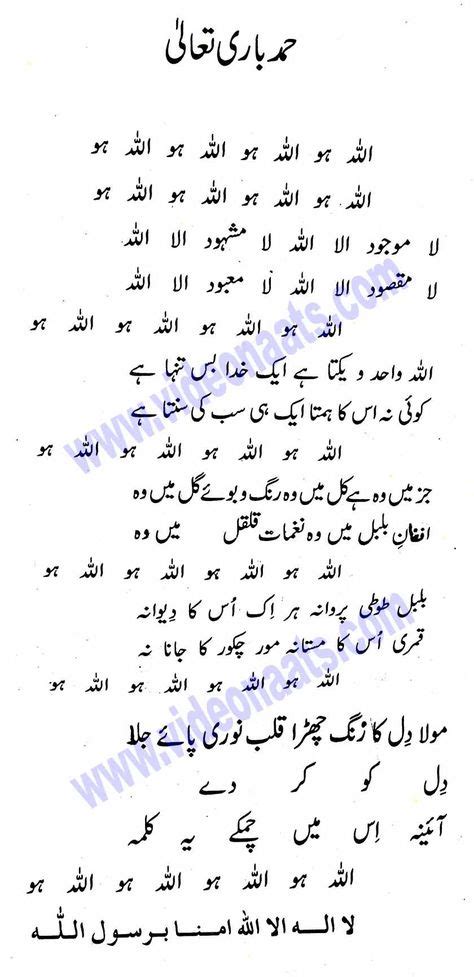 حمد باری تعالیٰ
اللہ ہو اللہ ہو اللہ ہو اللہ ہو
اللہ ہو اللہ ہو اللہ ہو اللہ ہو
لا موجود الا اللہ لا مشہود الا اللہ
لا مقصود الا اللہ لا معبود الا اللہ
اللہ ہو اللہ ہو اللہ ہو اللہ ہو
اللہ واحد و یکتا ہے ایک خدا بس تنہا ہے
کوئی نہ اس کا ہمتا ایک ہی سب کی سنتا ہے
اللہ ہو اللہ ہو اللہ ہو اللہ ہو
جز میں وہ ہے کل میں وہ رنگ و بوئے گل میں وہ
افغانِ بلبل میں وہ نغمات قلقل میں وہ
اللہ ہو اللہ ہو اللہ ہو اللہ ہو
بلبل طوطی پروانہ ہر اِک اُس کا دیوانہ
قمری اُس کا مستانہ مور چکور کا جانا نہ
اللہ ہو اللہ ہو اللہ ہو اللہ ہو
مولا دِل کا زنگ چھڑا قلب نوری پائے جلا
دِل کو کر دے
آئینہ اِس میں چمکے یہ کلمہ
اللہ ہو اللہ ہو اللہ ہو اللہ ہو
لا الہ الا اللہ امنا برسول اللہ
www.videonaats.com
www.videonaats.com